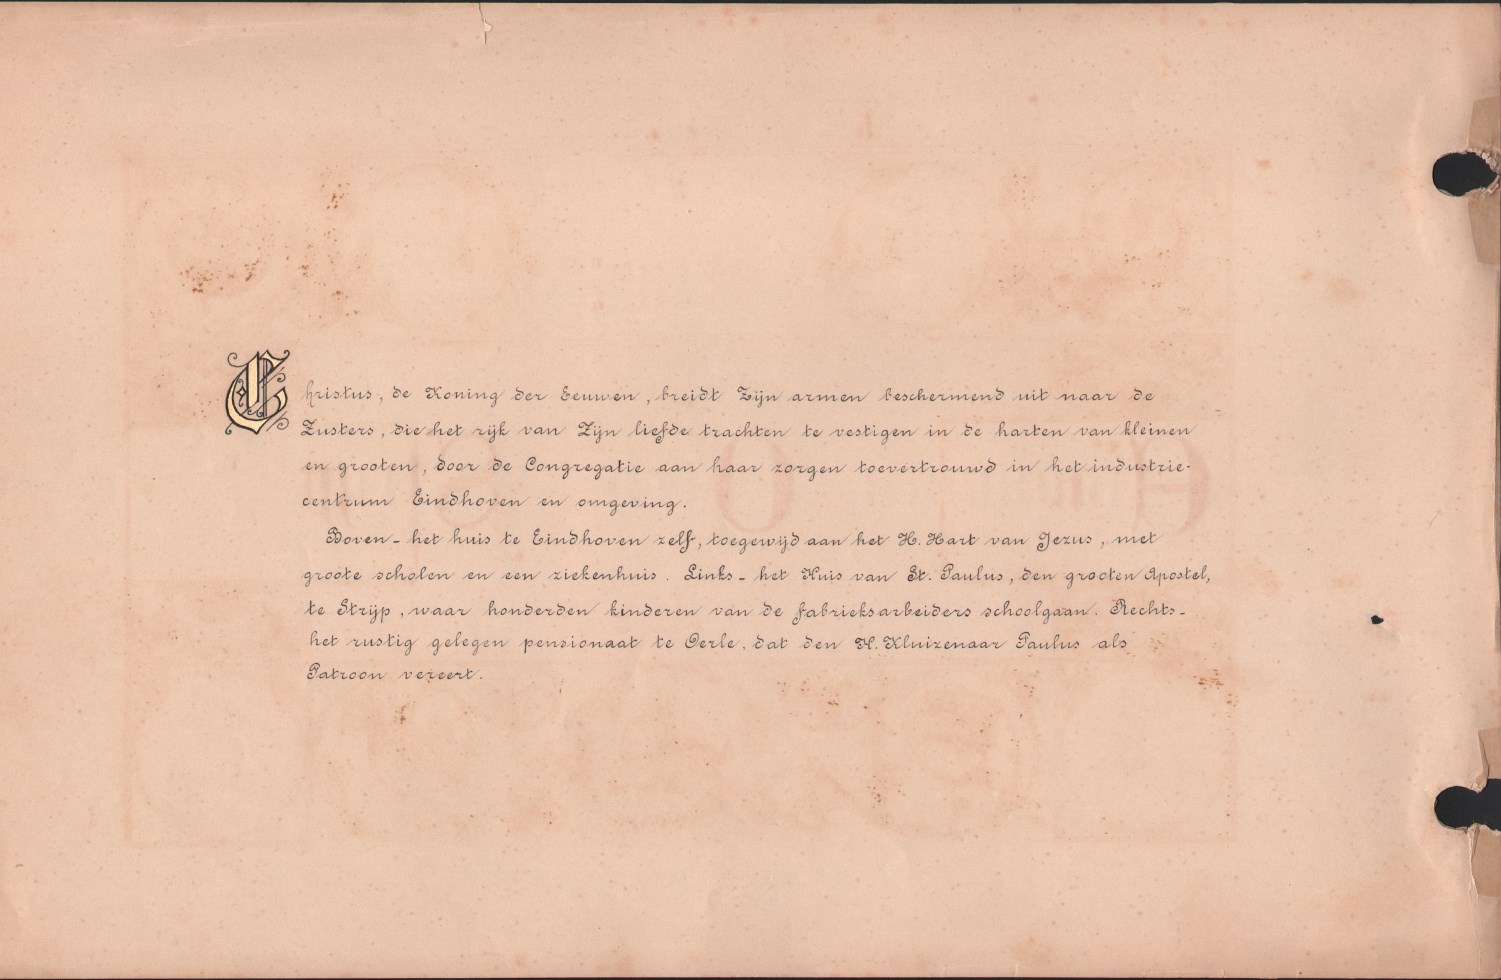 Christus, de Koning der Eeuwen, breidt Zijn armen beschermend uit naar de
Zusters, die het rijk van Zijn liefde trachten te vestigen in de harten van kleinen
en grooten, door de Congregatie aan haar zorgen toevertrouwd in het industrie-
centrum Eindhoven en omgeving.
Boven - het huis te Eindhoven zelf, toegewijd aan het H. Hart van Jezus, met
groote scholen en een ziekenhuis. Links - het Huis van St. Paulus, den grooten Apostel,
te Strijp, waar honderden kinderen van de fabrieksarbeiders schoolgaan. Rechts -
het rustig gelegen pensionaat te Oerle, dat den H. Kluizenaar Paulus als
Patroon vereert.